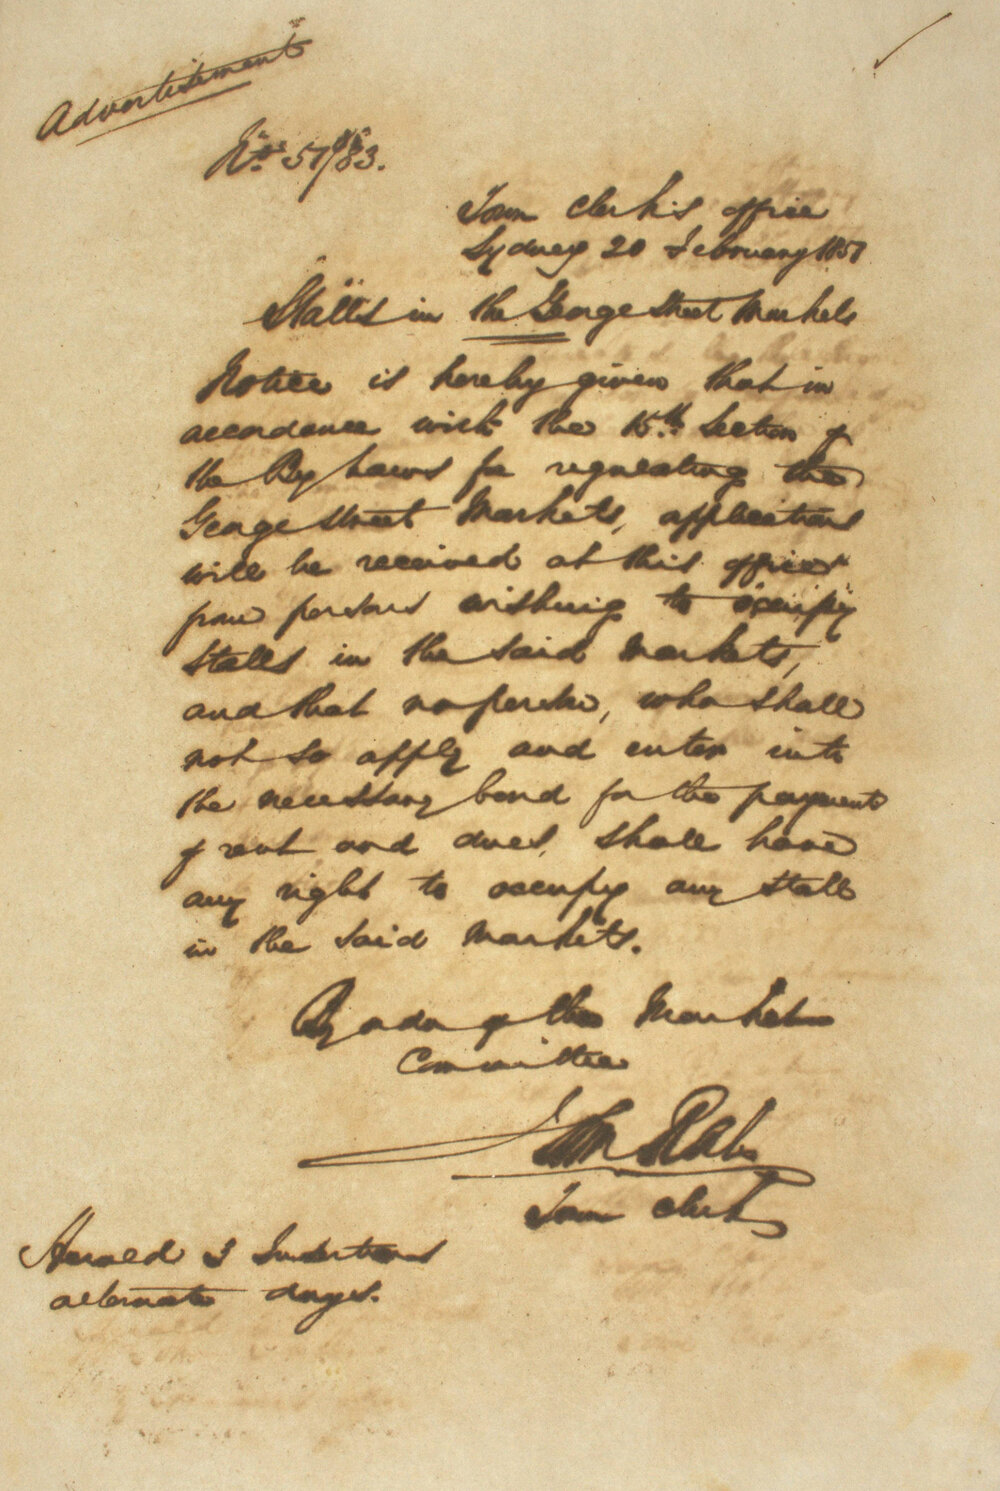 Advertisement
No. 51/83.
Town Clerk's office
Sydney 20 February 1851
Stalls in the George Street Markets
Notice is hereby given that in
accordance with the 15th Section of
the By Laws for regulating the
George Street Markets, applications
will be received at this office
from persons wishing to occupy
Stalls in the said Markets,
and that no person, who shall
not so apply and enter into
the necessary bond for the payment
of rent and dues, shall have
any right to occupy any stall
in the said Markets.
By order of the Market
Committee
John Rae
Town Clerk
Herald 3 Insertions
alternate days.